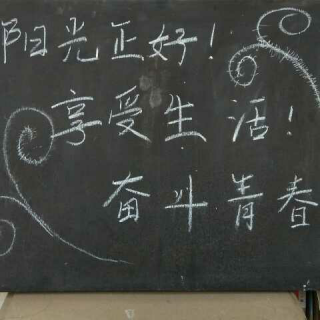 阳光正好!
享受生活!
奋斗青春